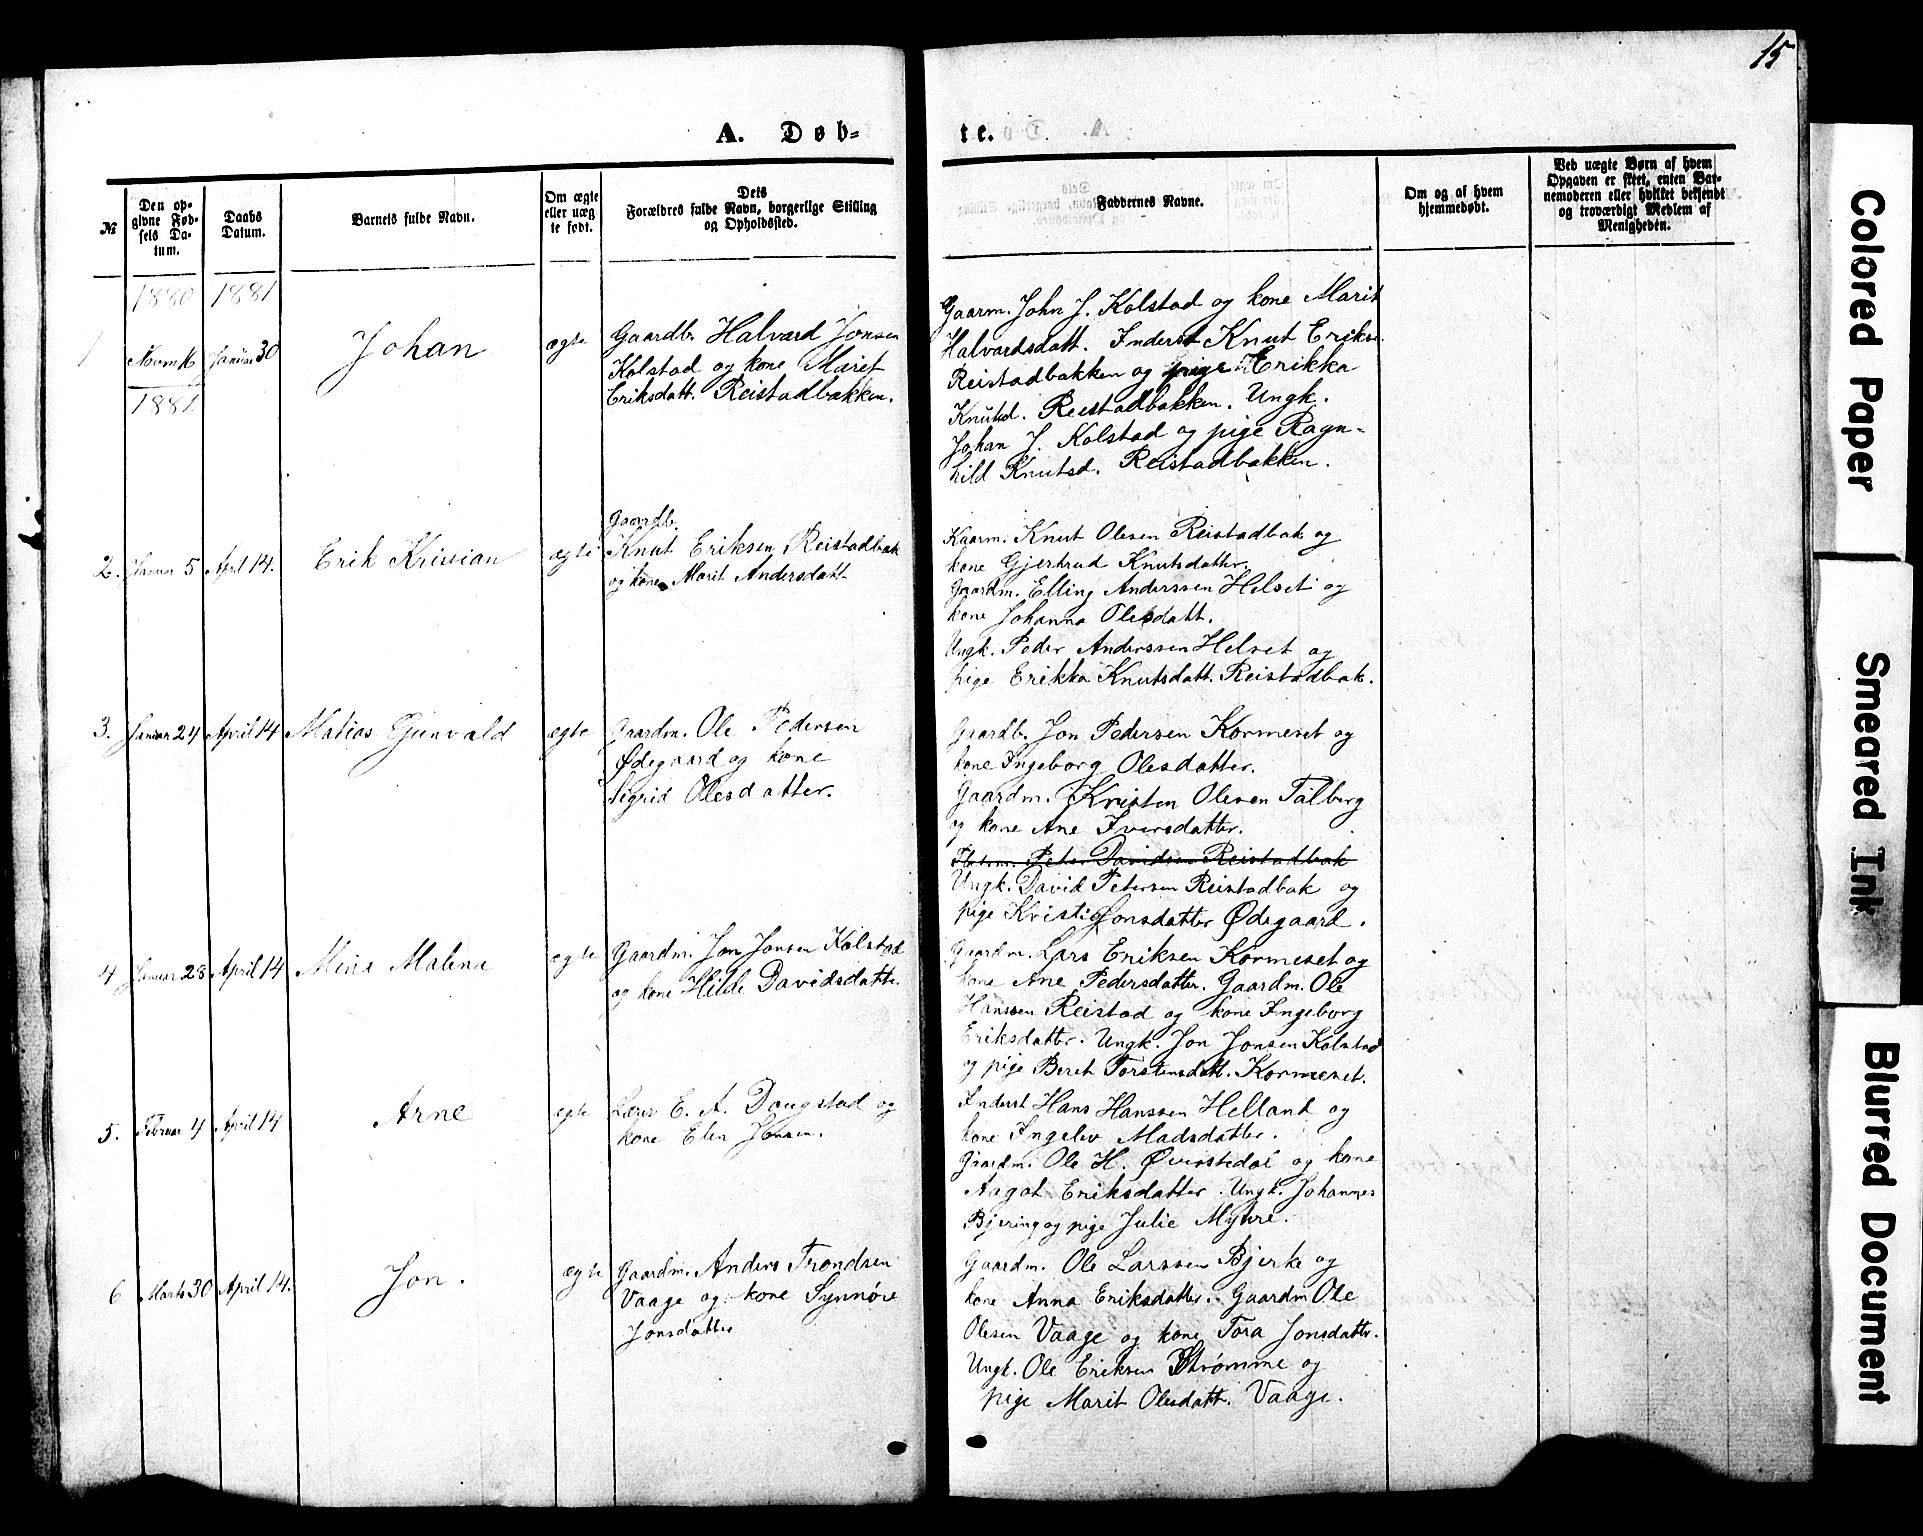 15
A. Døb-
te.
№
Den op-
givne Fød-
sels Da-
tum.
Daabs
Datum.
Barnets fulde Navn.
Om ægte
eller uæg
te født.
Dets
Forældres fulde Navn, borgerlige Stilling
og Opholdssted.
Faddernes Navne.
Om og af hvem
hjemmedøbt.
Ved uægte Børn af hvem
Opgaven er skeet, enten Bar-
nemoderen eller hvilket bekjendt
og troværdigt Medlem af
Menigheden.
1880 1881
1
Januar 30
Johan
ægte
Gaardb. Halvard Jonsen
Kolstad og kone Marit
Eriksdatt. Reistadbakken.
1881
Gaarm. John J. Kolstad og kone Marit
Halvardsdatt. Inderst Knut Eriks.
Reistadbakken og pige Erikka
Knutsd. Reistadbakken. Ungk.
Johan J. Kolstad og pige Ragn-
hild Knutsd. Reistadbakken.
2. Januar 5 April 14.
Erik Krisian
ægte
Gaardb.
Knut Eriksen Reistadbak
og kone Marit Andersdatt
Kaarm. Knut Olesen Reistadbak og
kone Gjertrud Knutsdatter.
Gaardm. Elling Anderssen Helset og
kone Johanna Olesdatt.
Ungk. Peder Anderssen Helset og
pige Erikka Knutsdatt. Reistadbak.
3. Januar 24 April 14
Matias Gunvald
ægte
Gaardm. Ole Pedersen
Ødegaard og kone
Sigrid Olesdatter.
Gaardb. Jon Pedersen Kormeset og
kone Ingeborg Olesdatter.
Gaardm. Kristen Olesen Talberg
og kone Ane Iversdatter.
Peter Davidsen Reistadbak
Ungk. David Petersen Reistadbak og
pige Kristi Jonsdatter Ødegaard.
4 Januar 28 April 14
Mina Malena
ægte
Gaardm. Jon Jonsen Kolstad
og kone Hilde Davidsdatter.
Gaardm. Lars Eriksen Kormeset og
kone Ane Pedersdatter. Gaardm. Ole
Hanssen Reistad og kone Ingeborg
Eriksdatter. Ungk. Jon Jonsen Kolstad
og pige Beret Torstensdatt. Kormeset.
5. Februar 4 April 14
Arne
ægte
Lars E. A. Daugstad og
kone Elen Jensen.
Inderst Hans Hanssen Helland og
kone Ingelev Madsdatter.
Gaardm. Ole H. Øverstedal og kone
Aagot Eriksdatter. Ungk. Johannes
Bjering og pige Julie Myhre.
6 Marts 30 April 14.
Jon.
ægte
Gaardm. Anders Trondsen
Vaage og kone Synnøve
Jonsdatter
Gaardm. Ole Larssen Bjerke og
kone Anna Eriksdatter. Gaardm Ole
Olesen Vaage og kone Tora Jonsdatter.
Ungk. Ole Eriksen Strømme og
pige Marit Olesdatt. Vaage.
Colored Paper
Smeared Ink
Blurred Document